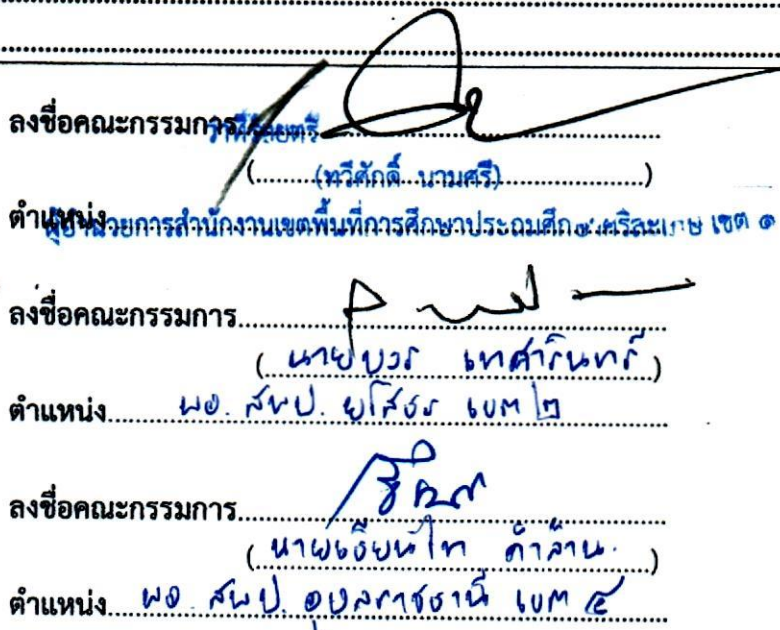 ลงชื่อคณะกรรมการ ว่าที่ร้อยตรี
(ทวีศักดิ์ นามศรี)
ตำแหน่ง ผู้อำนวยการสำนักงานเขตพื้นที่การศึกษาประถมศึกษาศรีสะเกษ เขต ๑
ลงชื่อคณะกรรมการ
(นายบวร เทศารินทร์)
ตำแหน่ง ผอ. สพป. ยโสธร เขต ๒
ลงชื่อคณะกรรมการ
(นายเธียนไท คำล้าน)
ตำแหน่ง ผอ. สพป. อุบลราชธานี เขต ๕